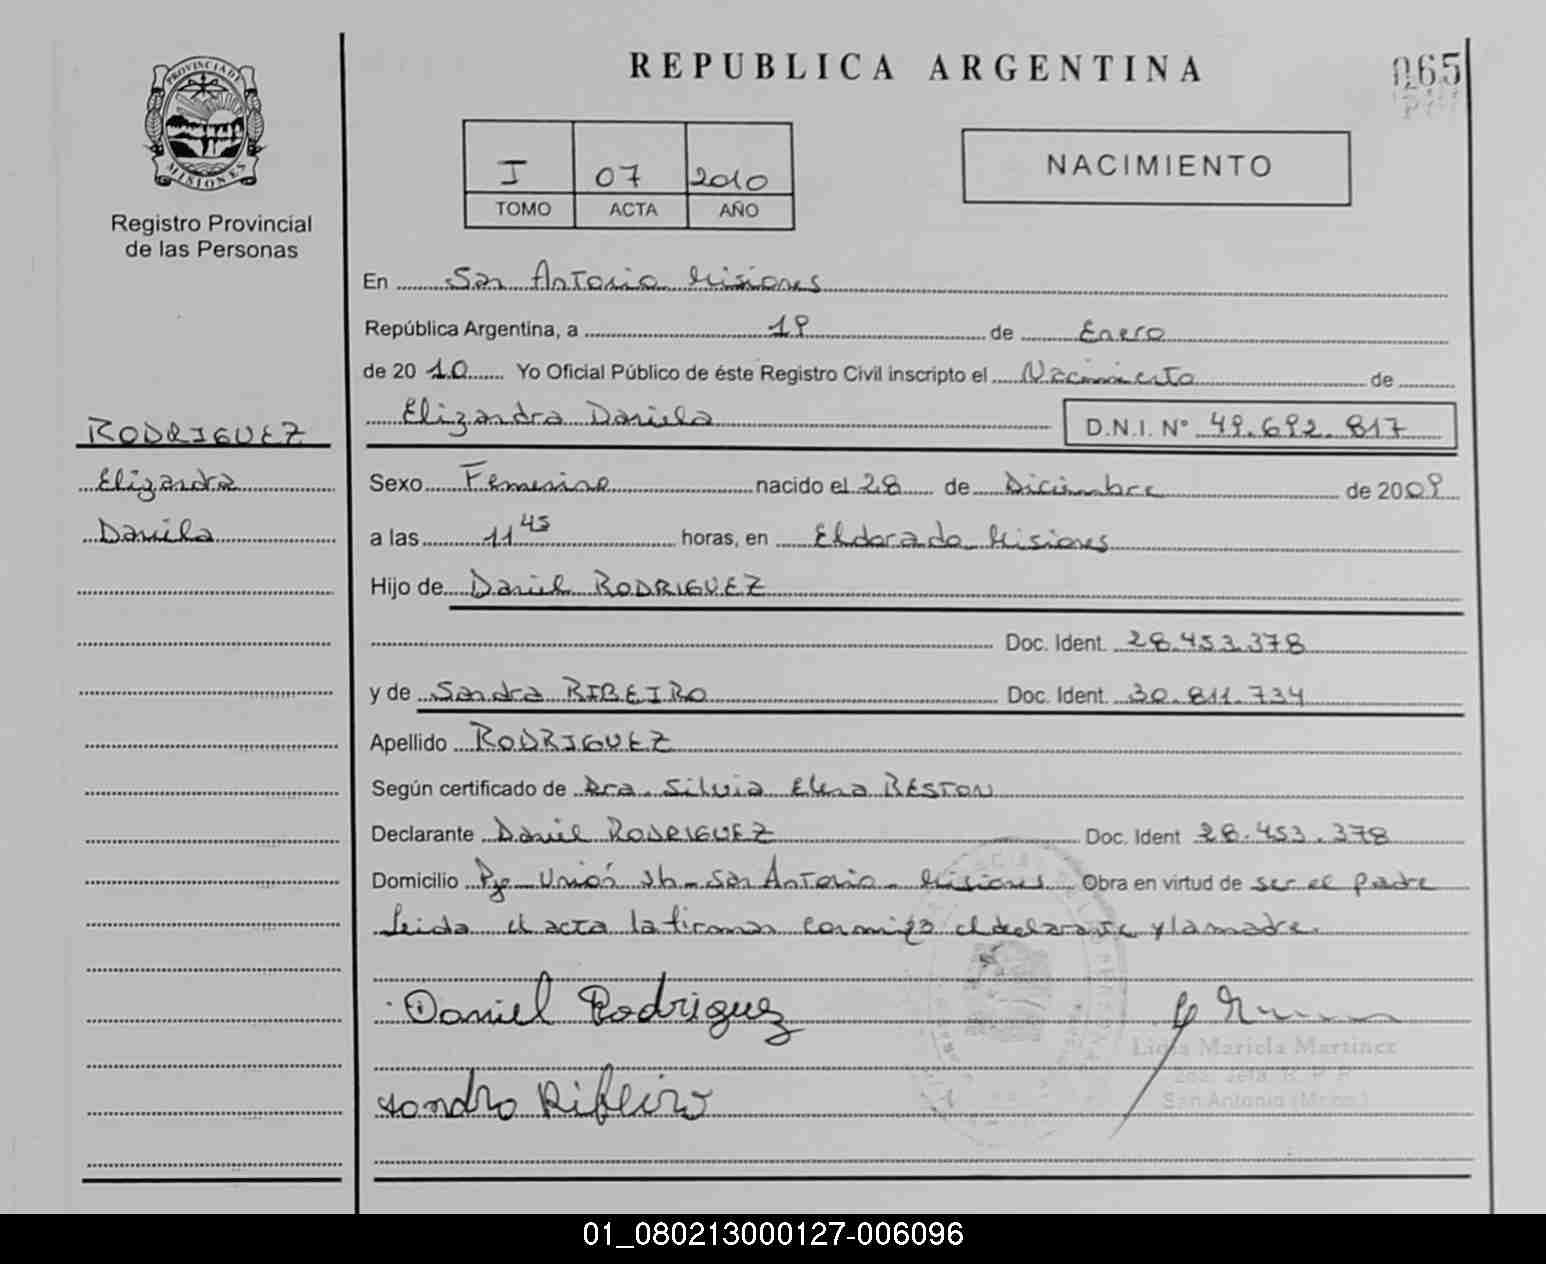 PROVINCIA DE
MISIONES
Registro Provincial
de las Personas
REPUBLICA ARGENTINA
065
I 07 2010
TOMO ACTA AÑO
NACIMIENTO
En San Antonio Misiones
República Argentina, a 19 de Enero
de 2010 Yo Oficial Público de éste Registro Civil inscripto el Nacimiento de
Elizandra Daniela
D.N.I. N° 49.692.817
RODRIGUEZ
Elizandra
Daniela
Sexo Femenino nacido el 28 de Diciembre de 2009
a las 11 45 horas, en Eldorado Misiones
Hijo de Daniel RODRIGUEZ
Doc. Ident. 28.453.378
y de Sandra RIBEIRO Doc. Ident. 30.811.734
Apellido RODRIGUEZ
Según certificado de Dra. Silvia Elena RESTON
Declarante Daniel RODRIGUEZ Doc. Ident 28.453.378
Domicilio Pje Unión - San Antonio - Misiones Obra en virtud de ser el padre
Leida el acta la firman conmigo el declarante y la madre.
Daniel Rodriguez
Lidia Mariela Martinez
San Antonio (Mnes.)
Sandra Ribeiro
01_080213000127-006096